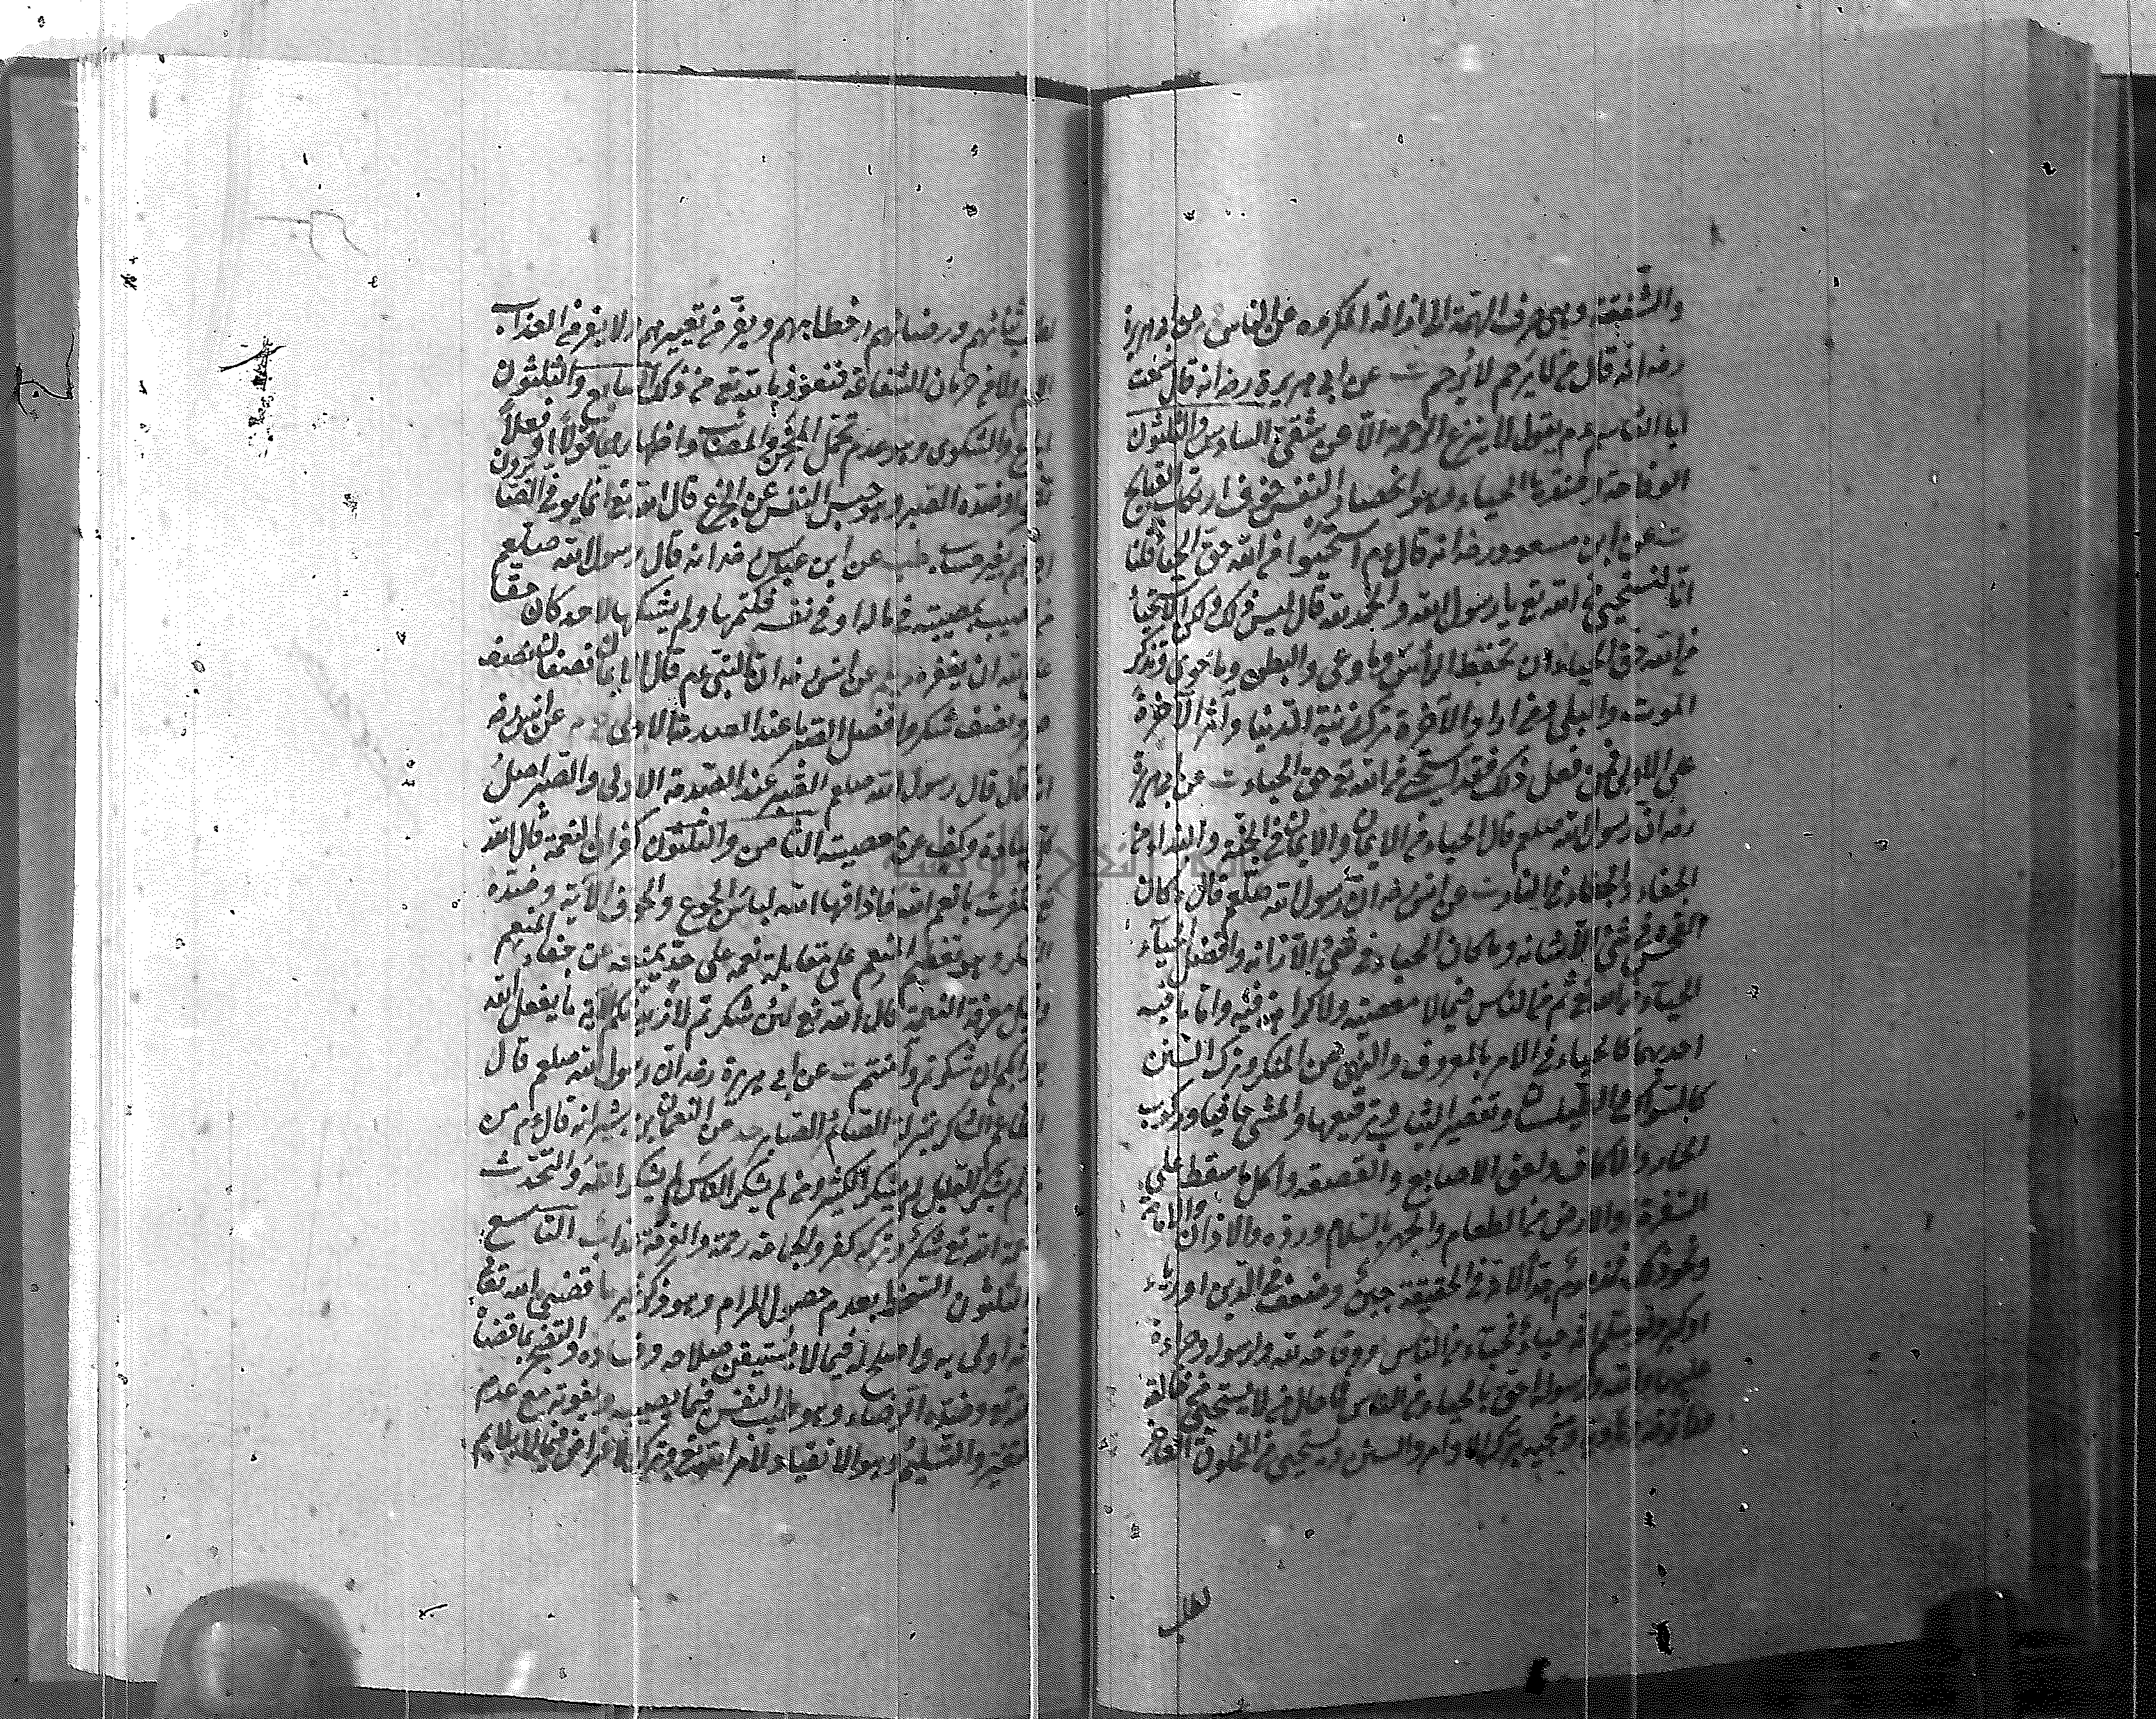 والشفقة وهى صرف الهمة الى ازالة المكروه عن الناس
رضه انه قال من لا يرحم لا يرحم ت عن ابى هريرة رضه انه قال سمعت
ابا القاسم عم يقول لا ينزع الرحمة الا من شقى السادس والثلثون
الوقاحة وضده الحياء وهو انحصار النفس خوف ارتكاب القبايح
ت عن ابن مسعود رضه انه قال عم استحيوا من الله حق الحيا قلنا
انا لنستحيى من الله تع يا رسول الله والحمد لله قال ليس ذلك ولكن الاستحيأ
من الله حق الحياء ان تحفظ الرأس وما وعى والبطن وما حوى وتذكر
الموت والبلى ومن اراد الآخرة ترك زينة الدنيا وآثر الآخرة
على الاولى فمن فعل ذلك فقد استحى من الله تع حق الحياء ت عن
رضه ان رسول الله صلعم قال الحياء من الايمان والايمان فى الجنة والبذاء من
الجفاء والجفاء فى النار ت عن انس رضه ان رسول الله صلعم قال ما كان
الفحش فى شئ الا شانه وما كان الحياء فى شئ الا زانه وافضل الحياء
الحياء من الله تع ثم من الناس فيما لا معصية ولا كراهة فيه واما ما فيه
احديهما كالحياء فى الامر بالمعروف والنهى عن المنكر وترك السنن
كالسواك وتقصير الثياب وترقيعها والمشى حافيا وركوب
الحمار ولعق الاصابع والقصعة واكل ما سقط على
السفرة والارض من الطعام والجهر بالسلام ورده والاذان والامامة
ونحو ذلك فمذموم جدا لانه فى الحقيقة جبن وضعف فى الدين او رياء
او كبر الناس ووقاحة لله ولرسوله
الله ورسوله احق بالحياء من الناس فما حال من لا يستحيى من خالقه
بترك الاوامر والسنن ويستحيى من المخلوق العاجز
لطلب
لطلب ثنائهم ورضائهم ويفر من تعييرهم ولا يفر من العذاب
ولا من حرمان الشفاعة فنعوذ بالله تع من ذلك السابع والثلثون
الجزع والشكوى وهو عدم تحمل المحن والمصائب واظهارها قولا او فعلا
وضده الصبر وهو حبس النفس عن الجزع قال الله تع انما يوفى الصابرون
اجرهم بغير حساب طب عن ابن عباس رضه انه قال رسول الله صلعم
من اصيب بمصيبة فى ماله او فى نفسه فكتمها ولم يشكها لاحد كان حقا
على الله ان يغفر له عن انس رضه ان النبى عم قال الايمان نصفان نصف
صبر ونصف شكر وافضل الصبر ما عند الصدمة الاولى خ م عن انس رضه
انه قال قال رسول الله صلعم الصبر عند الصدمة الاولى والصبر اصل
كل عبادة وكف عن معصية الثامن والثلثون كفران النعمة قال الله
تع فكفرت بانعم الله فاذاقها الله لباس الجوع والخوف الآية وضده
الشكر وهو تعظيم المنعم على مقابلة نعمه على حد يمنعه عن جفاء المنعم
وقيل معرفة النعمة قال الله تع لئن شكرتم لازيدنكم الآية ما يفعل الله
بعذابكم ان شكرتم وآمنتم ت عن ابى هريرة رضه ان رسول الله صلعم قال
الطاعم الشاكر بمنزلة الصائم الصابر عن النعمان بن بشير انه قال عم من
لم يشكر القليل لم يشكر الكثير ومن لم يشكر الناس لم يشكر الله والتحدث
بنعمة الله تع شكر وتركه كفر والجماعة رحمة والفرقة عذاب التاسع
والثلثون السخط بعدم حصول المرام وهو ذكر غير ما قضى الله تعا
انه اولى به واصلح له فيما لا يستيقن صلاحه وفساده والتضجر بما قضا
وضده الرضاء وهو طيب النفس فيما يصيبه ويفوته مع عدم
التغير والتسليم وهو الانقياد لامر الله تع وترك الاعتراض فيما لا يلايم